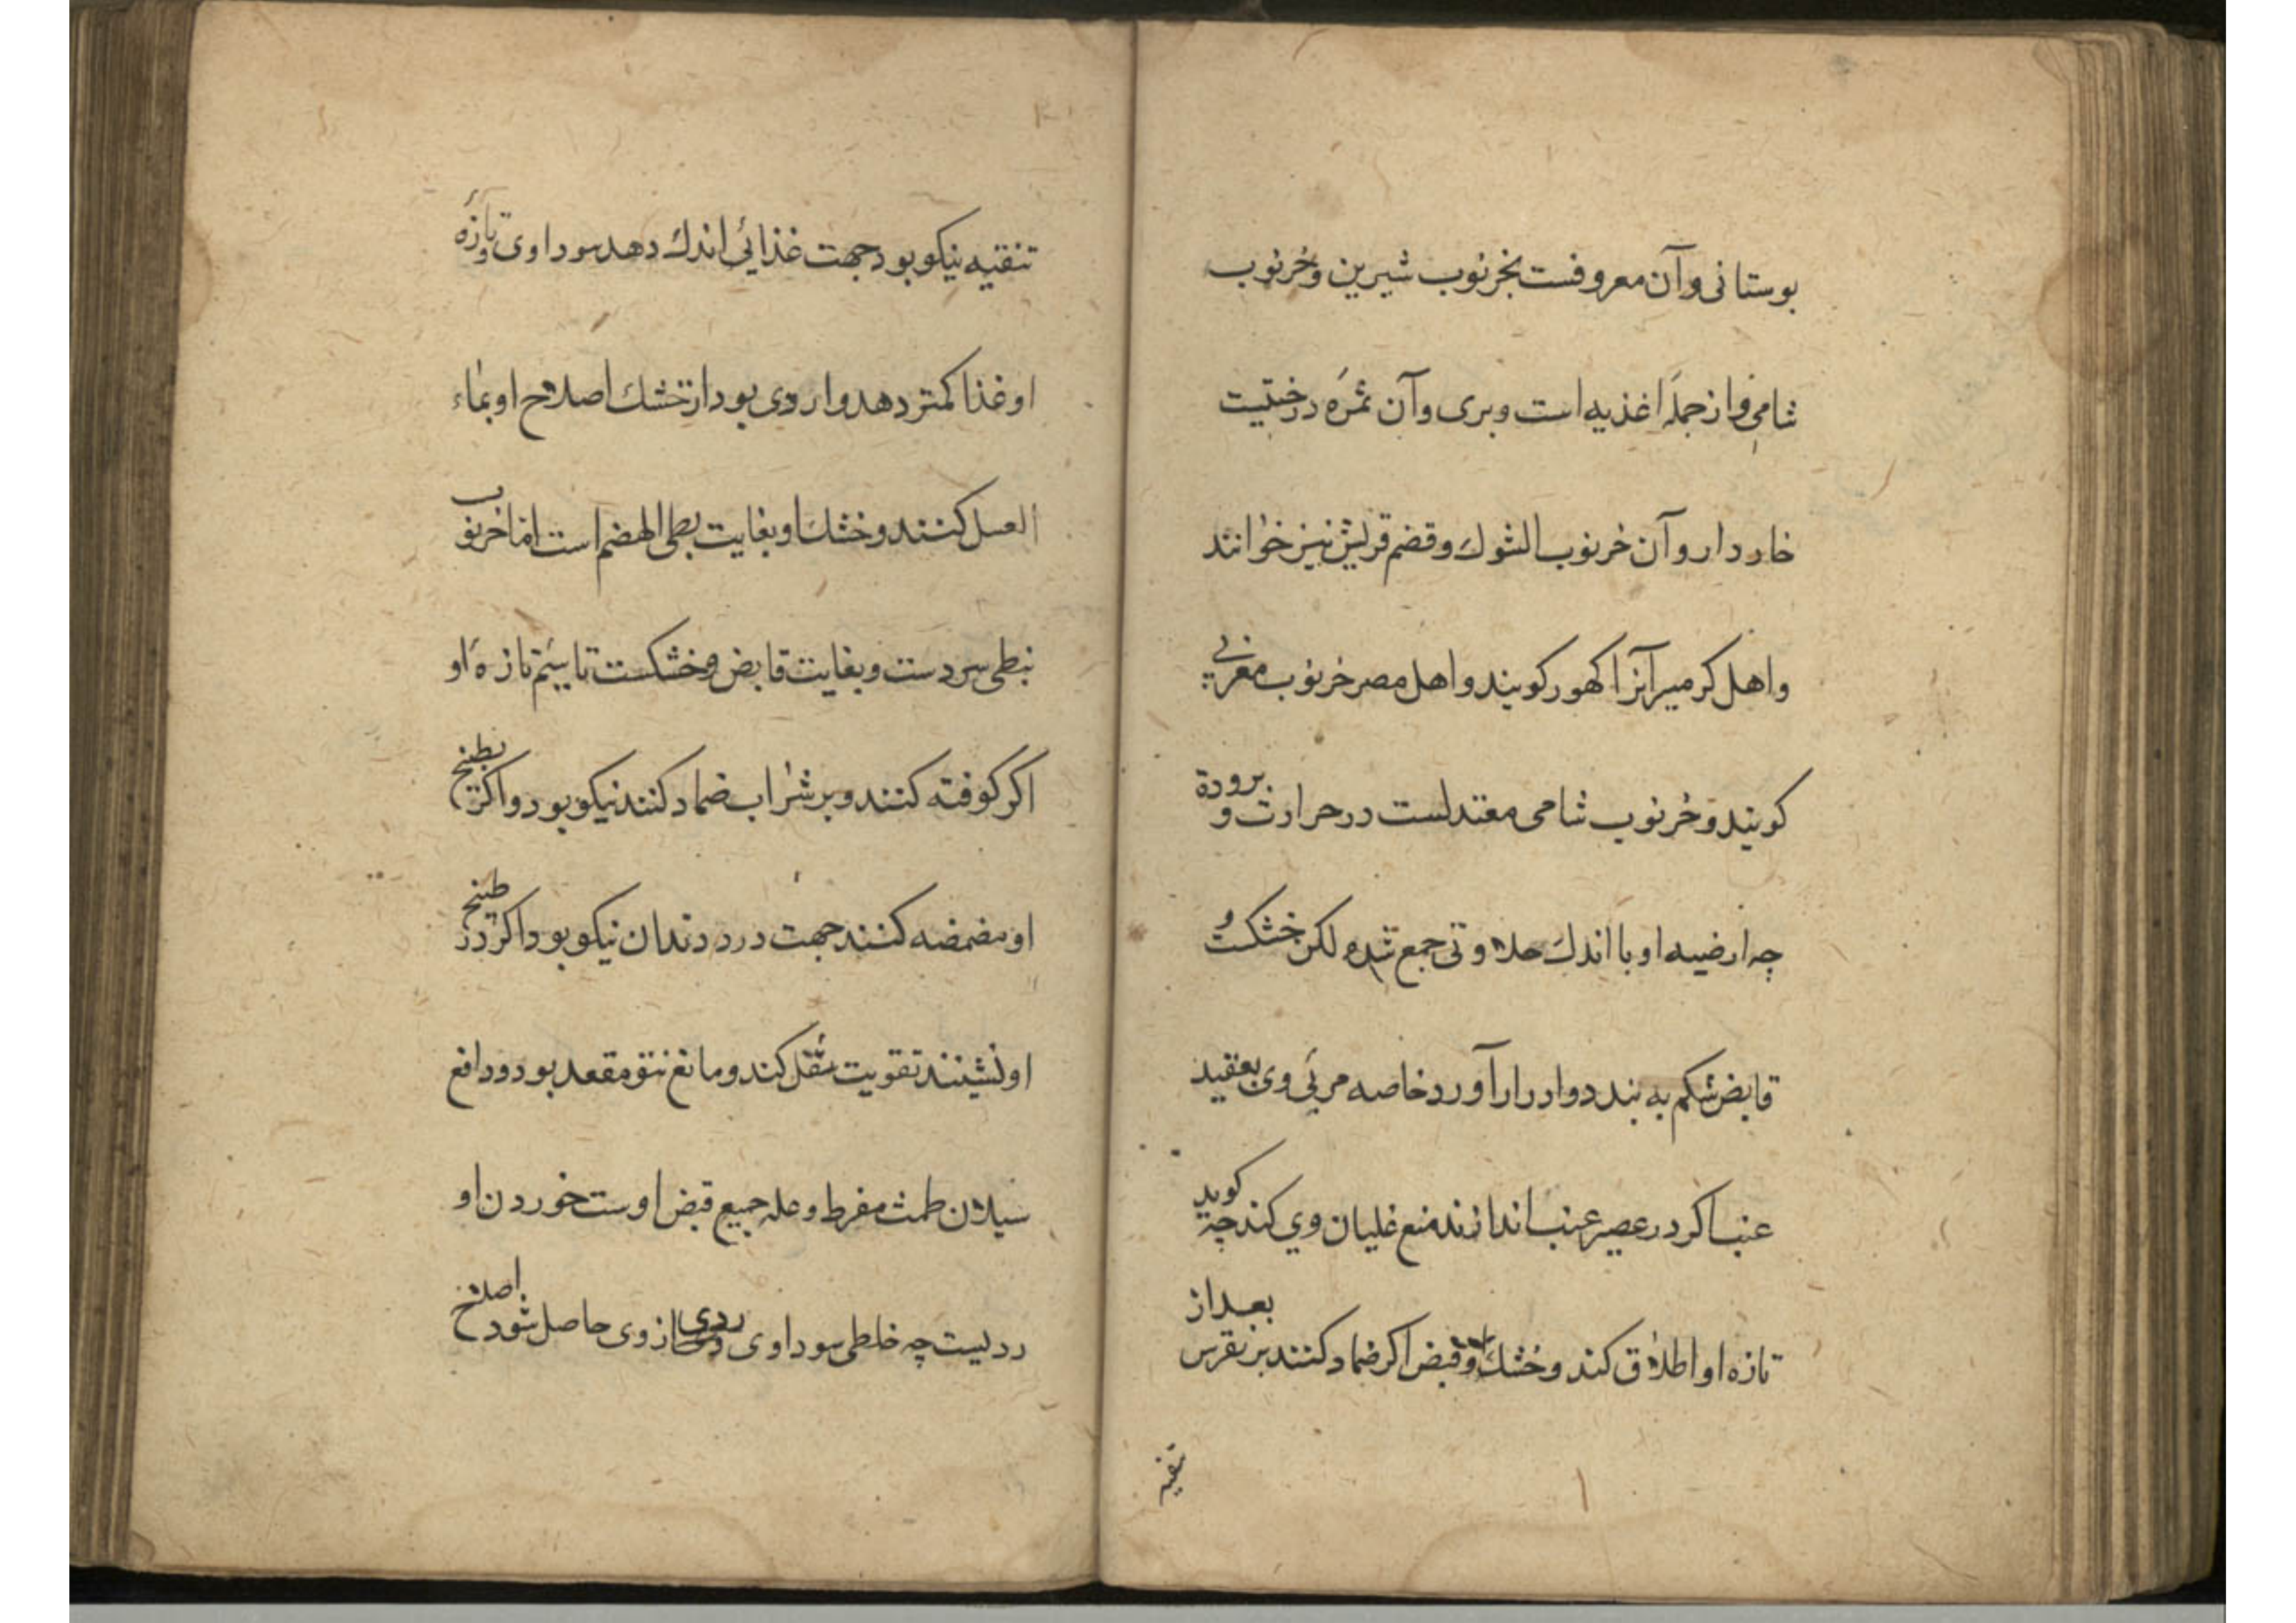 بوستانی وآن معروفست بخرنوب شیرین وخرنوب
شامی واز جملهٔ اغذیه است وبری وآن ثمرهٔ درختیست
خاردار وآن خرنوب الشوك وقضم قریش نیز خوانند
واهل کرمسیر آنرا کهور کویند واهل مصر خرنوب مغربی
کویند وخرنوب شامی معتدلست در حرارت وبرودة
چه ارضیه او با اندك حلاوتی جمع شده لکن خشکست و
قابض شکم به بندد وادرار آورد خاصه مربی وی بعقید
عنب اکر در عصیر عنب اندازند منع غلیان وی کند چه کوید
تازه او اطلاق کند وخشك او قبض اکر ضماد کنند بر نقرس بعد از
تنقیه
تنقیه نیکو بود جهت غذائی اندك دهد سوداوی وتازهٔ
او غذا کمتر دهد واردی بود از خشك اصلاح او بماء
العسل کنند وخشك او بغایت بطی الهضم است اما خرنوب
نبطی سردست وبغایت قابض وخشکست تا سیم تازهٔ او
اکر کوفته کنند وبر شراب ضماد کنند نیکو بود واکر بطبیخ
او مضمضه کنند جهت درد دندان نیکو بود واکر در طبیخ
او نشینند تقویت مثقل کند ومانع نتو مقعد بود ودافع
سیلان طمث مفرط وعله جمیع قبض اوست خوردن او
ردیست چه خلطی سوداوی ردی از وی حاصل شود اصلاح